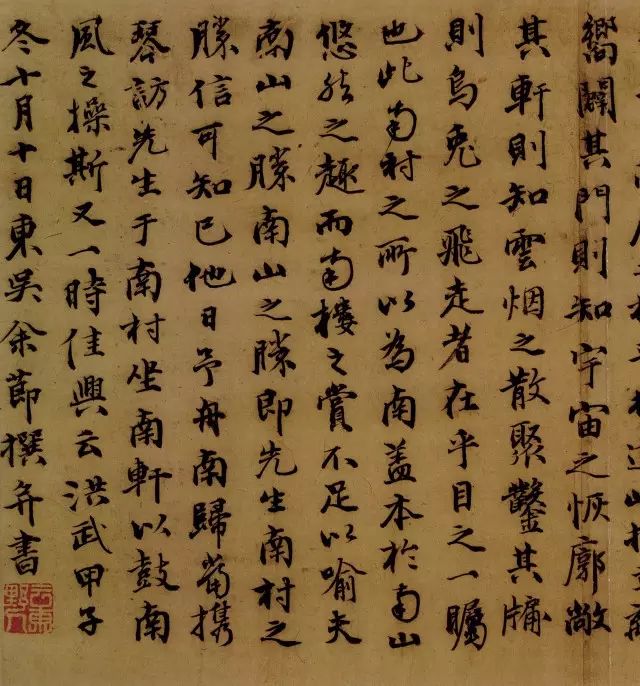 嚮闢其門則知宇宙之恢廓敞
其軒則知雲烟之散聚鑿其牖
則烏兎之飛走者在乎目之一矚
也此南村之所以為南蓋本於南山
悠然之趣而南樓之賞不足以喻夫
南山之勝南山之勝即先生南村之
勝信可知已他日予舟南歸當携
琴訪先生于南村坐南軒以鼓南
風之操斯又一時佳興云洪武甲子
冬十月十日東吴余莭撰并書